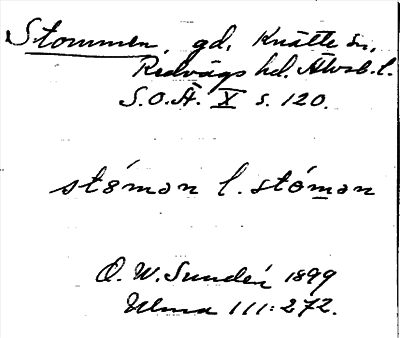 Stommen, gd, Knätte sn,
Redvägs hd. Älvsb. l.
S.O.Ä. X s. 120.
stómən l. stómən
O. W. Sundén 1899
Ulma 111:272.